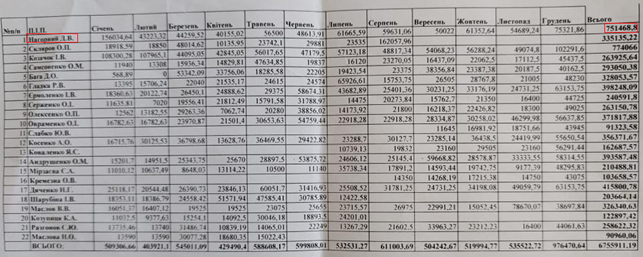 №п/п П.І.П. Січень Лютий Березень Квітень Травень Червень Липень Серпень Вересень Жовтень Листопад Грудень Всього
1 Нагорний Д.В. 156034,64 43223,32 44259,52 40155,02 56500 48613,91 61665,59 59631,06 50022 61352,64 54689,24 75321,86 751468,8
2 Скляров О.П. 18918,59 18850 48014,62 10135,95 23742,1 29881 23535 162057,96 335135,22
3 Козачок І.В. 108300,28 44095,05 42845,05 56017,65 47179,5 57123,18 48817,34 54068,23 56288,24 49074,8 102291,6 774066
4 11940 11308 15936,34 14829,81 47634,85 19837 16120 23270,05 16437,09 22062,5 17112,5 45437,5 263925,64
5 Бага Д.О. 568,89 0 33756,06 18285,58 22205 19423,54 22375 38356,84 23387,38 20187,5 40162,5 293050,38
6 Гладка Р.В. 13395 15706,24 22040 21535,17 24615 24574 65926,61 15753,75 26505 28767,8 21005 48230 328053,51
7 18360,63 20122,74 26450,1 24888,62 29375 58674,31 43682,89 25401,36 30231,25 33176,19 24731,25 63153,75 398248,09
8 11635,81 7020 19556,41 21812,49 15791,58 31788,97 14475 20273,84 15762,7 21350 16400 44725 240591,8
9 12562 13182,55 29263,36 7062,74 20280 38856,02 14173,92 21800 16218,37 22426,2 18300 49025 263150,78
10 16782,63 16782,63 23870,97 21501,4 30653,63 54759,44 22918,28 22918,28 28334,87 30258,02 46299,98 56687,35 371817,88
11 Слабко Ю.В. 11645 16981,92 18751,66 43945 91323,58
12 Косенко А.О. 16715,76 30125,53 36798,68 13628,76 36469,55 29422,82 23288,7 30127,7 23285,14 36438,5 24419,99 55650,54 356371,67
13 Коваленко Я.С. 10739,13 19832 23160 29505 23160 56291,44 162687,57
14 Андрущенко О.М. 15201,7 14951,5 25343,75 25670 28897,5 53875,72 24606,12 25145,4 29668,82 28578,87 33333,55 58314,55 393587,48
15 Мірзаєва С.А. 11010,12 10637,49 8648,03 13114,22 10500 11140 35738,34 17891,2 14593,44 19742,15 9177,39 48295,83 210488,81
16 Кремезна О.В. 14350 14268,19 17215,38 14750 43075 103658,57
17 Даченко Н.Г. 25118,17 20544,48 26390,73 23846,13 60051,7 31416,93 25508,52 31781,25 24731,25 34198,08 49059,79 63153,75 415800,78
18 Шарубіна І.В. 18353,11 18386,79 24558,42 51571,94 47585,41 30785,89 12422,58 203664,14
19 Маслов В.В. 16051,37 16407,12 19525 19525 23075 25655 23715,57 26975 22991,21 15052,45 78670,07 38697,84 326340,63
20 Козупиця К.А. 11032,5 9377,63 15254,1 14092,5 30046,18 18893,5 24202,01 122897,42
21 Разгонов С.Ю. 13735,46 13740 31486,74 10839,19 14065,01 22249 13267,29 21602,5 33963,27 23212,23 16400 44061,63 258622,32
22 Маслова Н.О. 13590 13590 30077,28 18680,35 15022,43 90960,06
ВСЬОГО: 509306,66 403921,1 545011,09 429490,4 588608,17 599808,01 532531,27 611003,69 504242,67 519994,77 535522,72 976470,64 6755911,19